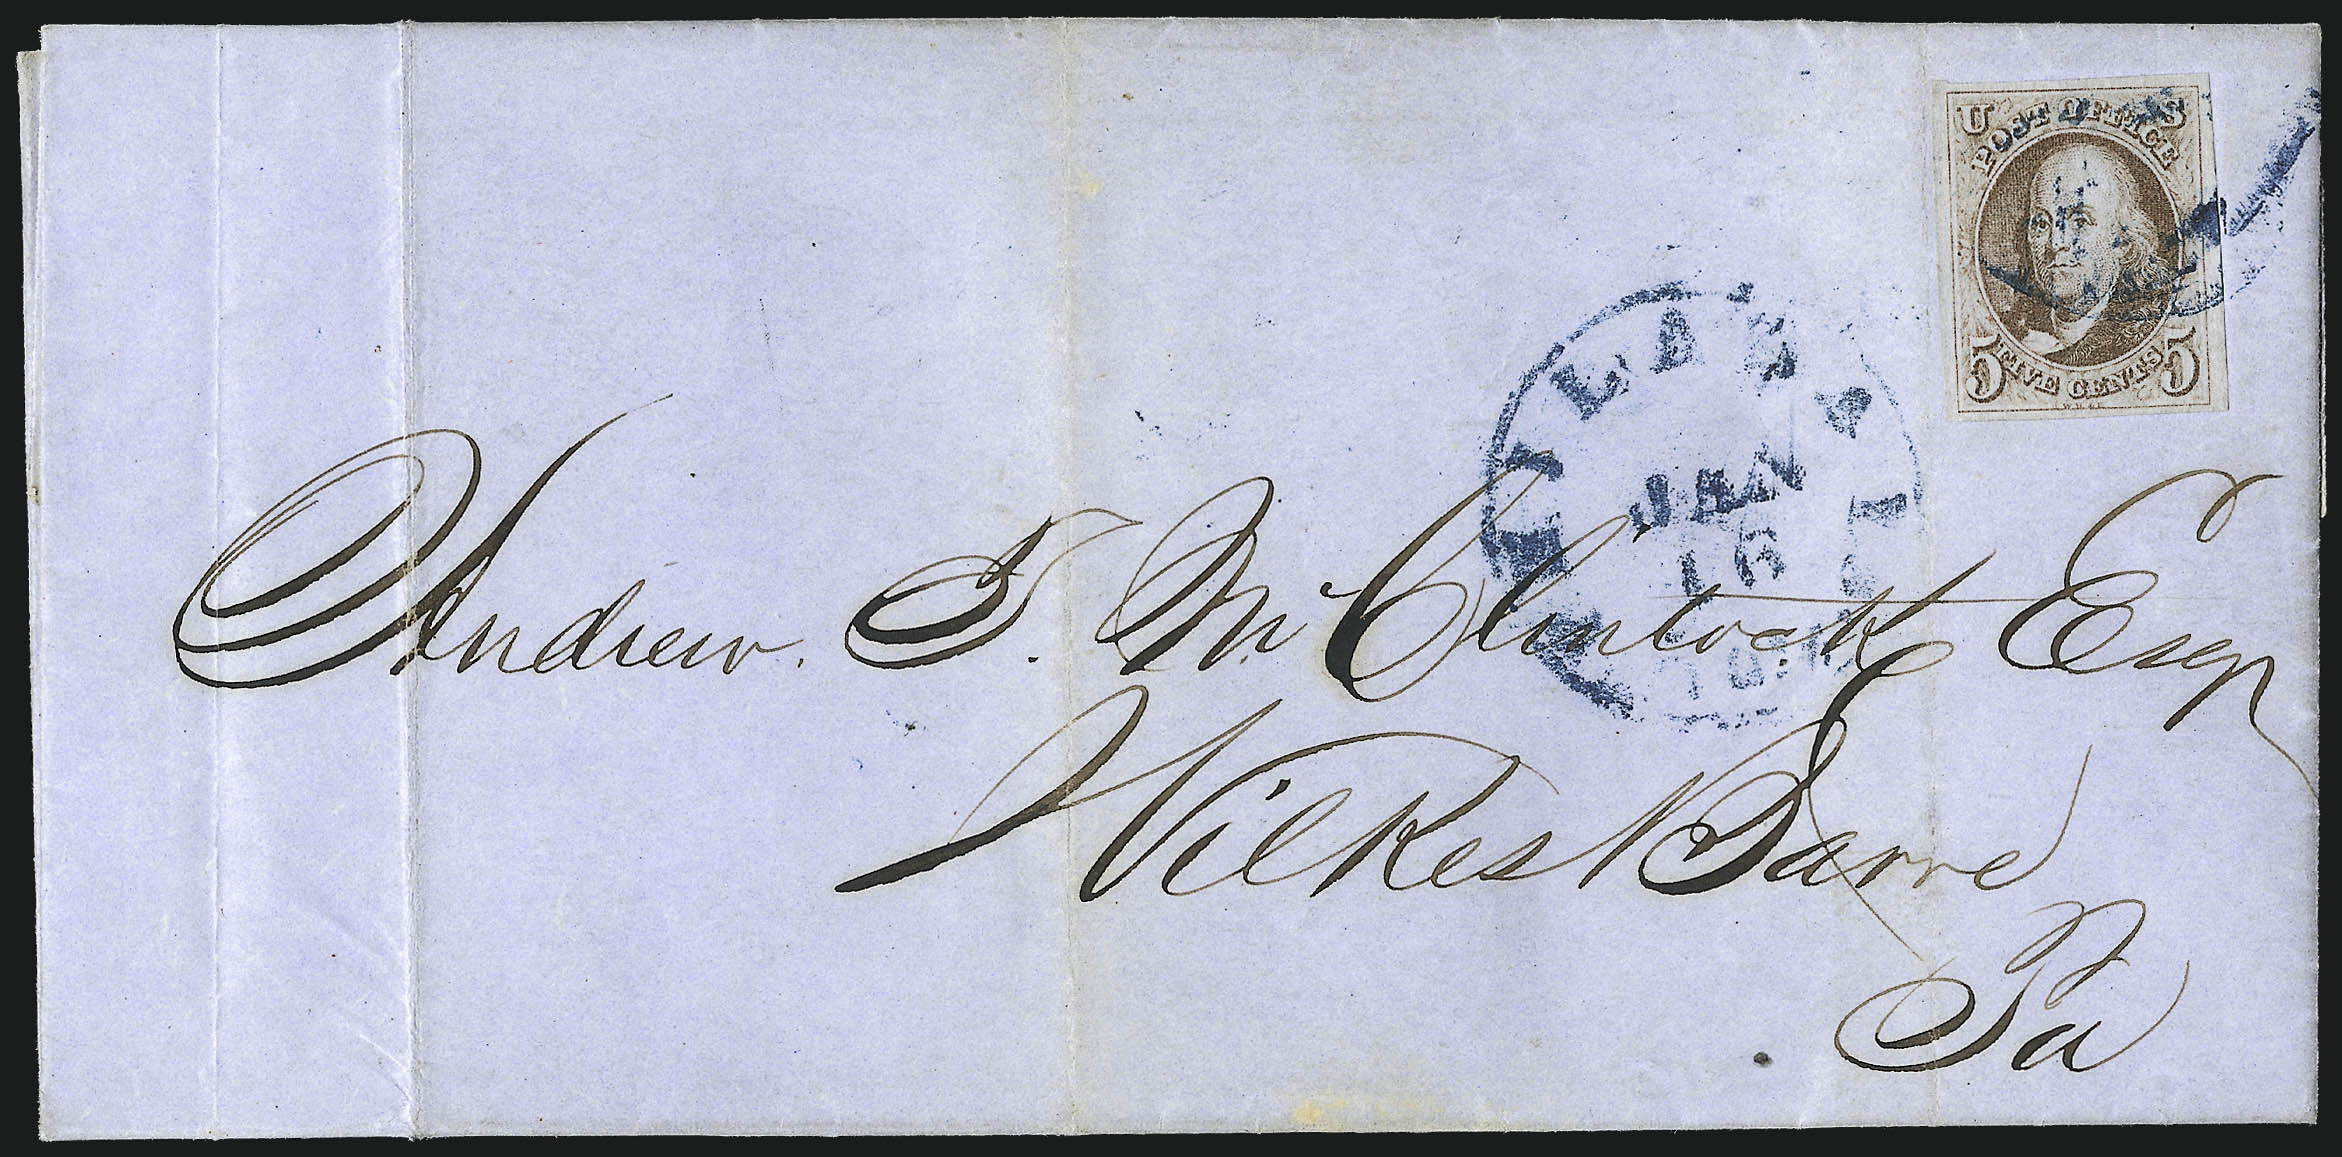 U S
POST OFFICE
5 FIVE CENTS 5
JAN
16
Andrew. T. McClintock Esqr
Wilkes Barre
Pa